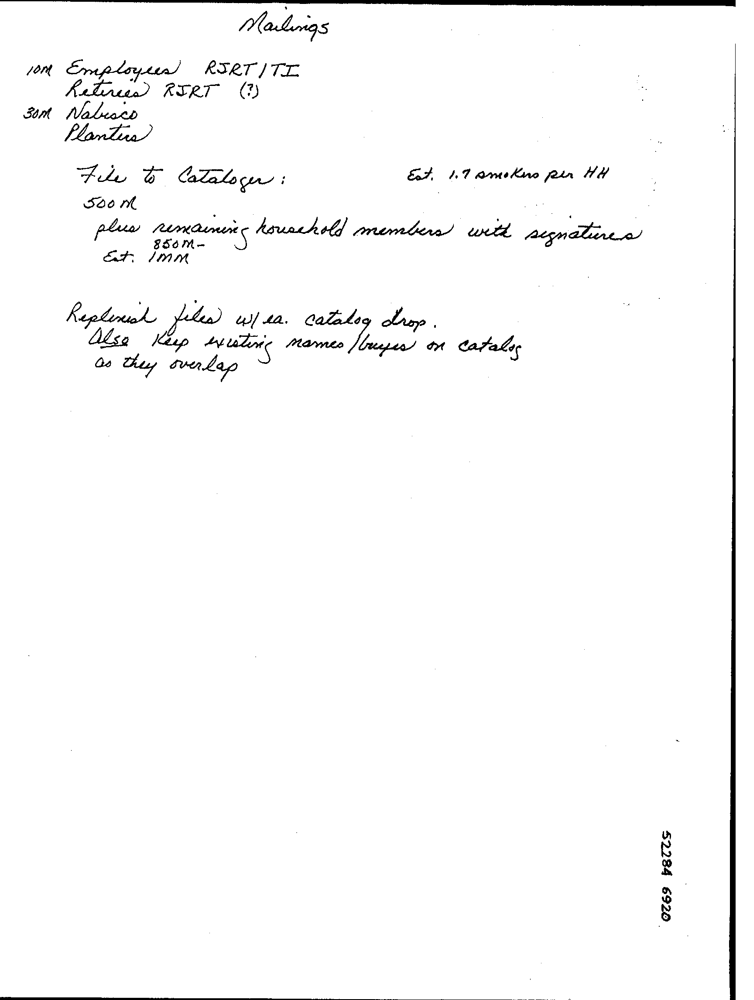 Mailings
10M Employees RJRT/TI
Retirees RJRT (?)
30M Nabisco
Planters
File to Cataloger:
Est. 1.7 smokers per HH
500M
plus remaining household members with signatures
850M-
Est. 1MM
Replenish files w/ ea. catalog drop.
Also Keep existing names/buyers on catalog
as they overlap
52284 6920